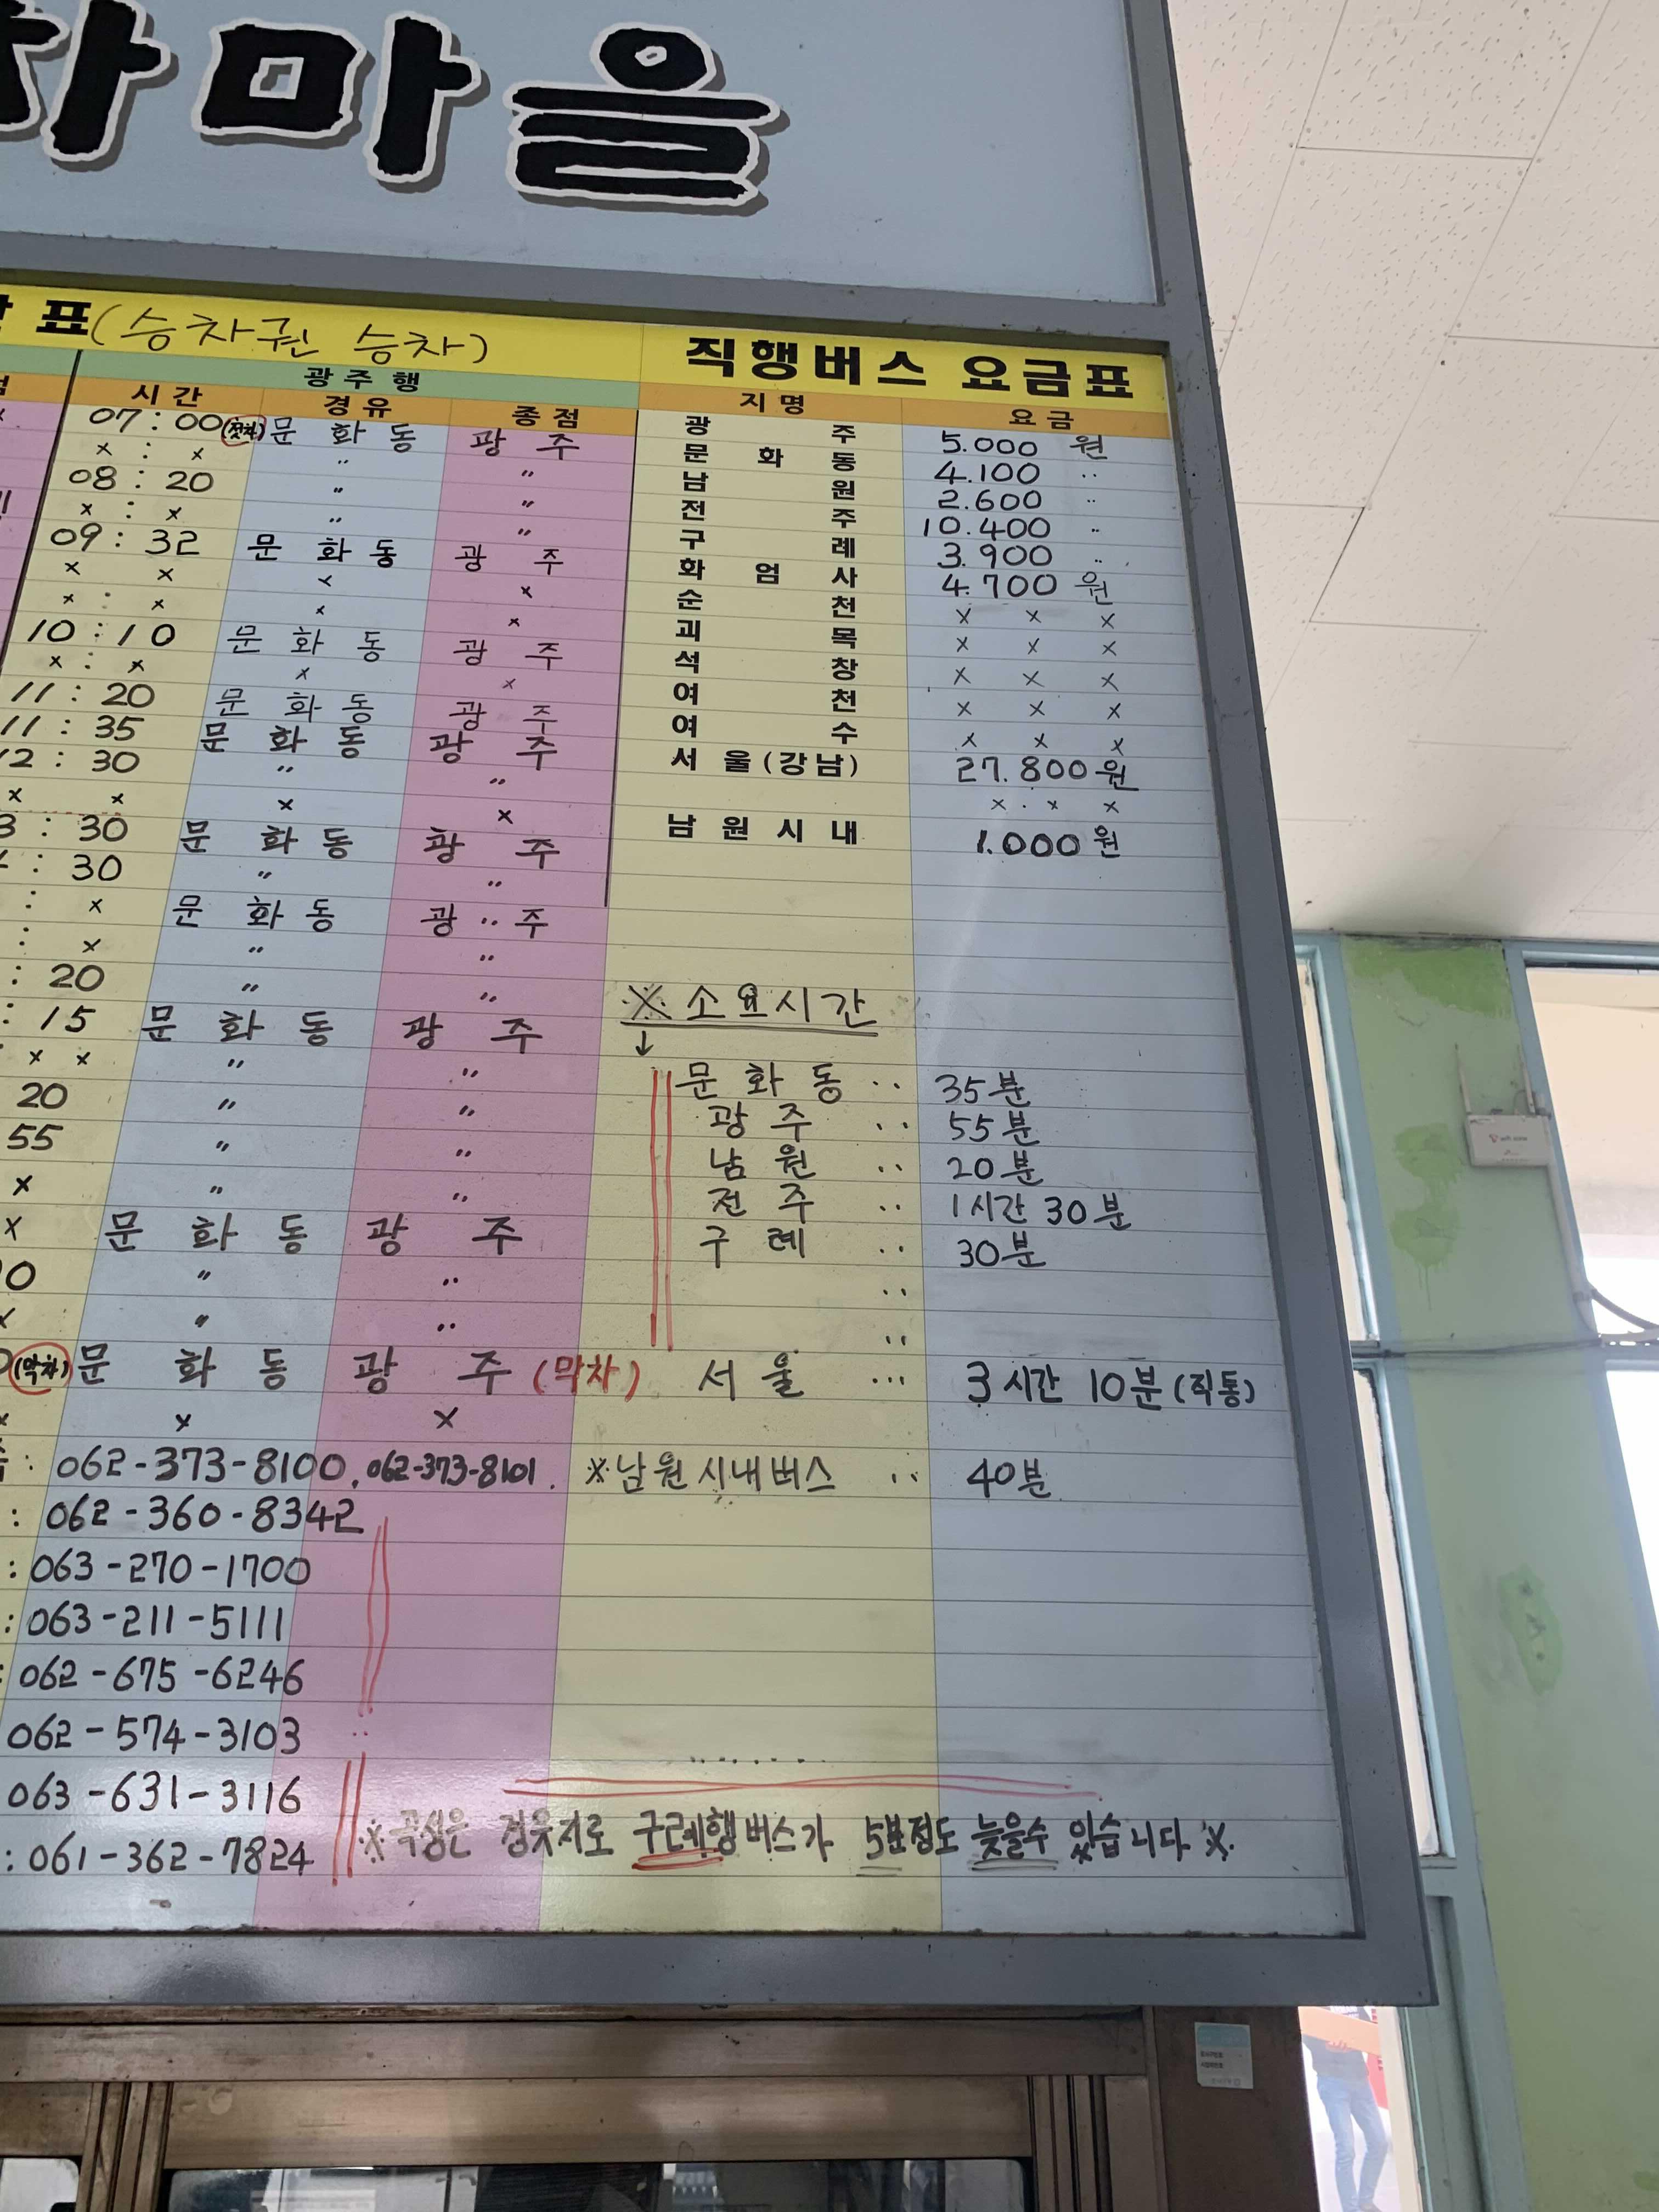 차마을
표(승차권 승차)
광주행
시간 경유 종점
07:00(첫차) 문화동 광주
×:× 〃 〃
08:20 〃 〃
×:× 〃 〃
09:32 문화동 광주
× × × ×
×:× × ×
10:10 문화동 광주
×:× × ×
11:20 문화동 광주
11:35 문화동 광주
12:30 〃 〃
× × × ×
3:30 문화동 광주
:30 〃 〃
: × 문화동 광주
: × 〃 〃
:20 〃 〃
:15 문화동 광주
× × 〃 〃
20 〃 〃
55 〃 〃
× 〃 〃
× 문화동 광주
0 〃 〃
× 〃 〃
(막차) 문화동 광주 (막차)
× × ×
: 062-373-8100, 062-373-8101.
: 062-360-8342
: 063-270-1700
: 063-211-5111
: 062-675-6246
062-574-3103
063-631-3116
: 061-362-7824
직행버스 요금표
지명 요금
광주 5.000 원
문화동 4.100 〃
남원 2.600 〃
전주 10.400 〃
구례 3.900 〃
화엄사 4.700 원
순천 × × ×
괴목 × × ×
석창 × × ×
여천 × × ×
여수 × × ×
서울(강남) 27.800원
× × ×
남원시내 1.000원
※ 소요시간
↓
문화동 ‥ 35분
광주 ‥ 55분
남원 ‥ 20분
전주 ‥ 1시간 30분
구례 ‥ 30분
서울 … 3시간 10분(직통)
※남원시내버스 ‥ 40분
※곡성은 경유지로 구례행버스가 5분정도 늦을수 있습니다 ※.